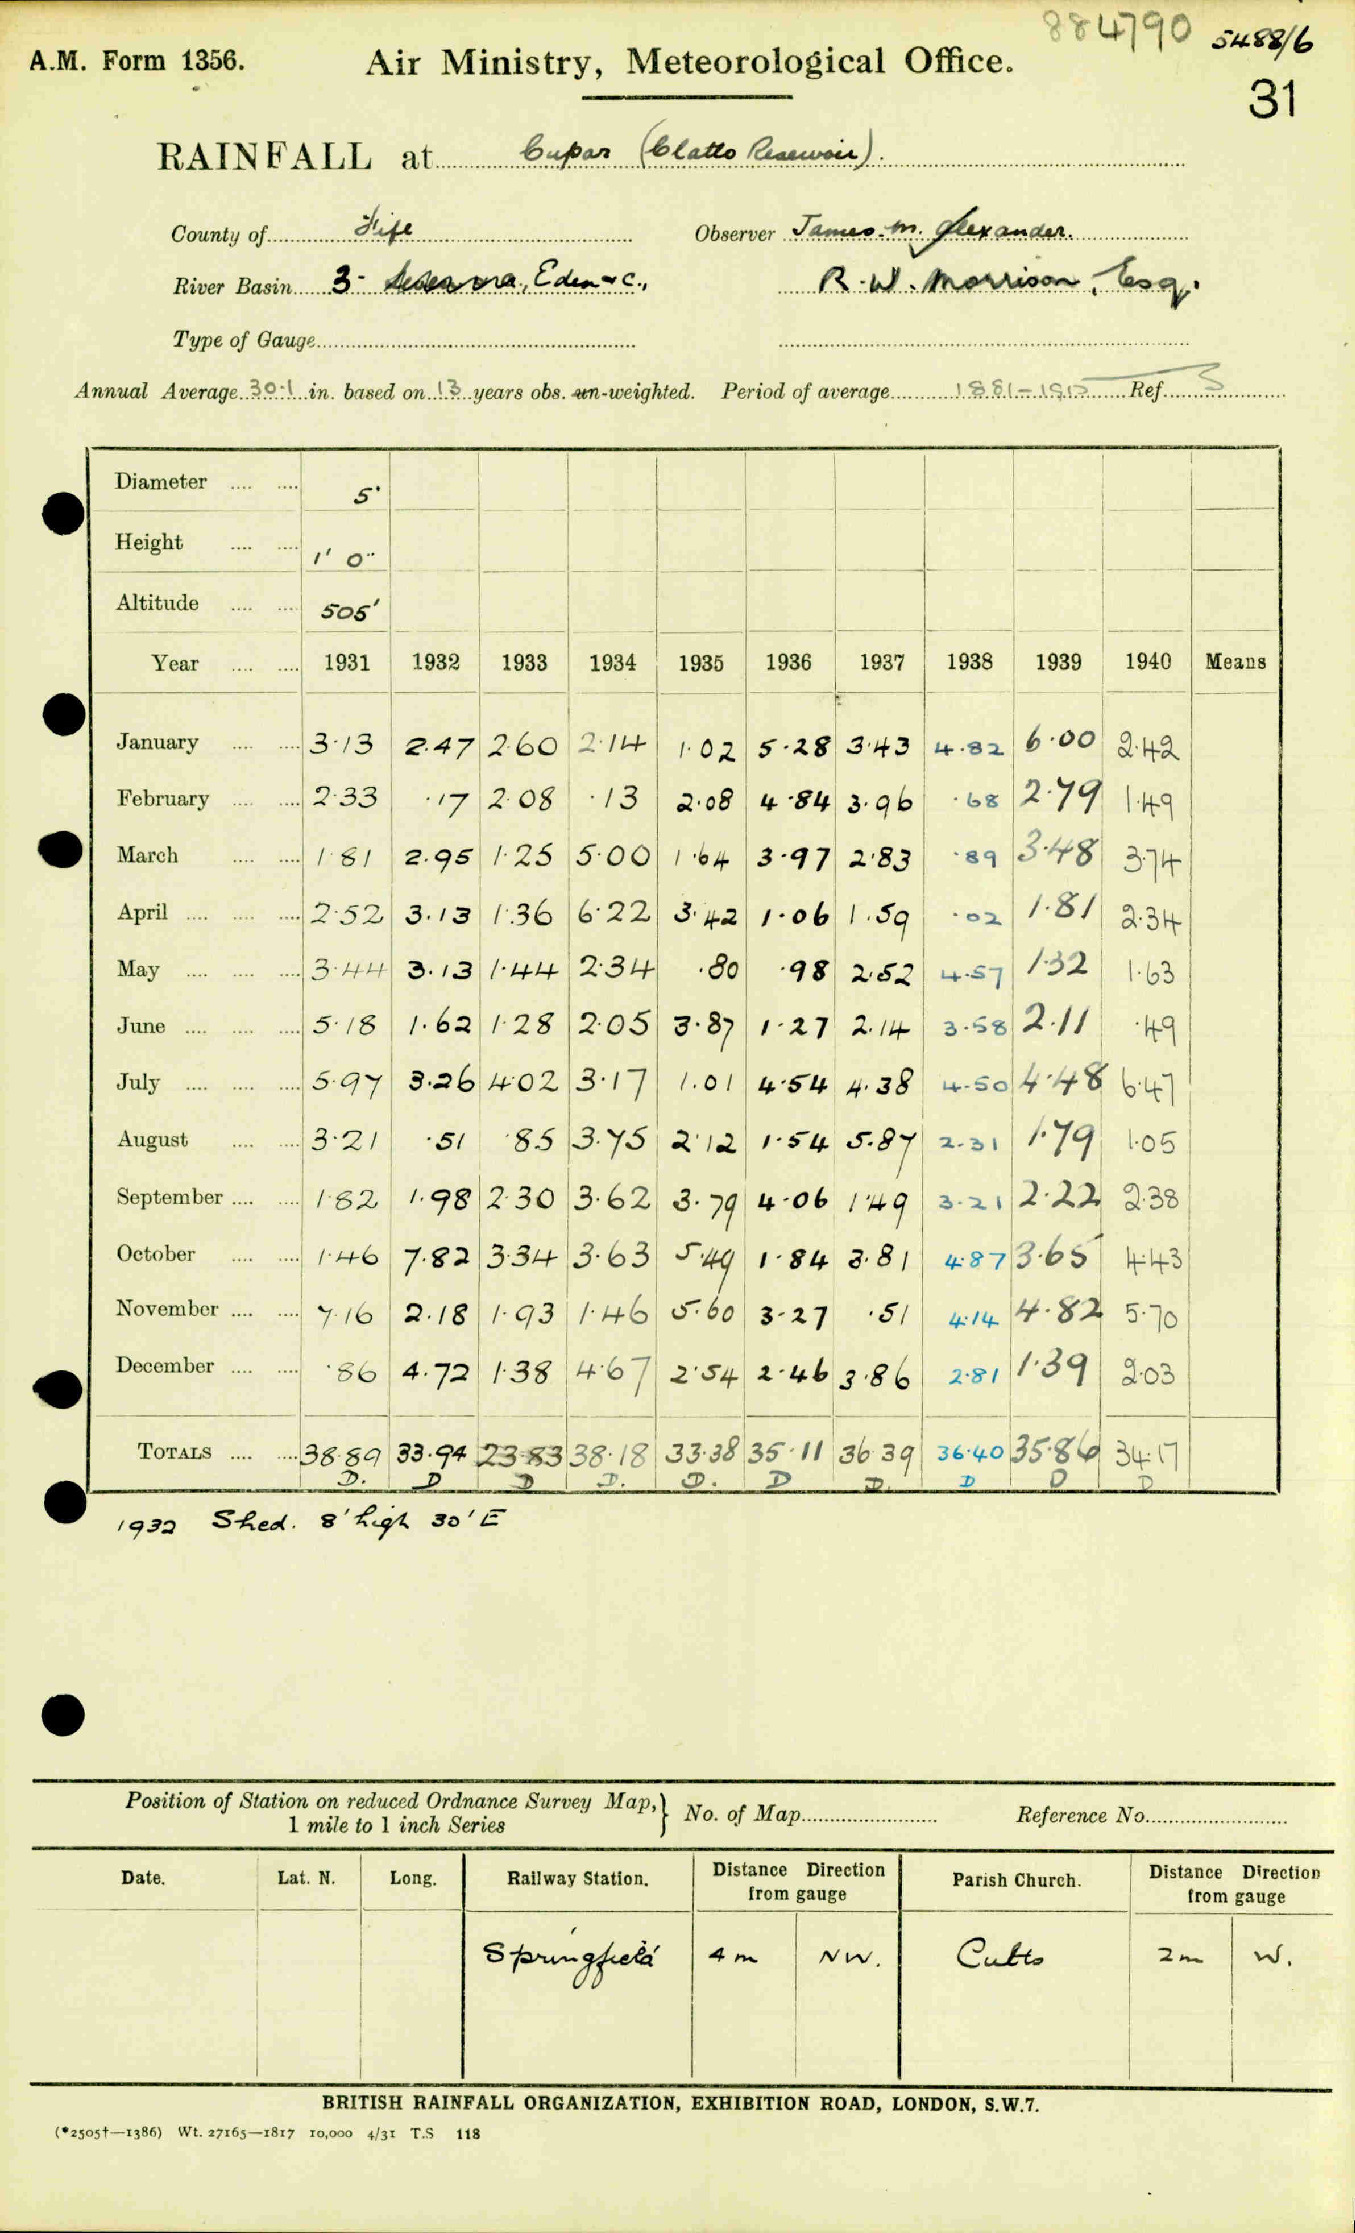 884790 5488/6
A.M. Form 1356. Air Ministry, Meteorological Office.
31
RAINFALL at Cupar (Clatto Reservoir).
County of Fife Observer James. M. Alexander.
River Basin 3- Eden & C., R. W. Morrison, Esq.
Type of Gauge
Annual Average 30.1 in. based on 13 years obs. un-weighted. Period of average 1881-1915 Ref. S
Diameter 5"
Height 1' 0"
Altitude 505'
Year 1931 1932 1933 1934 1935 1936 1937 1938 1939 1940 Means
January 3.13 2.47 2.60 2.14 1.02 5.28 3.43 4.82 6.00 2.42
February 2.33 .17 2.08 .13 2.08 4.84 3.96 .68 2.79 1.49
March 1.81 2.95 1.25 5.00 1.64 3.97 2.83 .89 3.48 3.74
April 2.52 3.13 1.36 6.22 3.42 1.06 1.59 .02 1.81 2.34
May 3.44 3.13 1.44 2.34 .80 .98 2.52 4.57 1.32 1.63
June 5.18 1.62 1.28 2.05 3.87 1.27 2.14 3.58 2.11 .49
July 5.97 3.26 4.02 3.17 1.01 4.54 4.38 4.50 4.48 6.47
August 3.21 .51 .85 3.75 2.12 1.54 5.87 2.31 1.79 1.05
September 1.82 1.98 2.30 3.62 3.79 4.06 1.49 3.21 2.22 2.38
October 1.46 7.82 3.34 3.63 5.49 1.84 3.81 4.87 3.65 4.43
November 7.16 2.18 1.93 1.46 5.60 3.27 .51 4.14 4.82 5.70
December .86 4.72 1.38 4.67 2.54 2.46 3.86 2.81 1.39 2.03
TOTALS 38.89 33.94 23.83 38.18 33.38 35.11 36.39 36.40 35.86 34.17
D. D D D. D. D D. D D D
1932 Shed. 8' high 30' E
Position of Station on reduced Ordnance Survey Map, 1 mile to 1 inch Series } No. of Map Reference No.
Date. Lat. N. Long. Railway Station. Distance Direction from gauge Parish Church. Distance Direction from gauge
Springfield 4 m NW. Cults 2 m W.
BRITISH RAINFALL ORGANIZATION, EXHIBITION ROAD, LONDON, S.W.7.
(*2505†—1386) Wt. 27165—1817 10,000 4/31 T.S 118